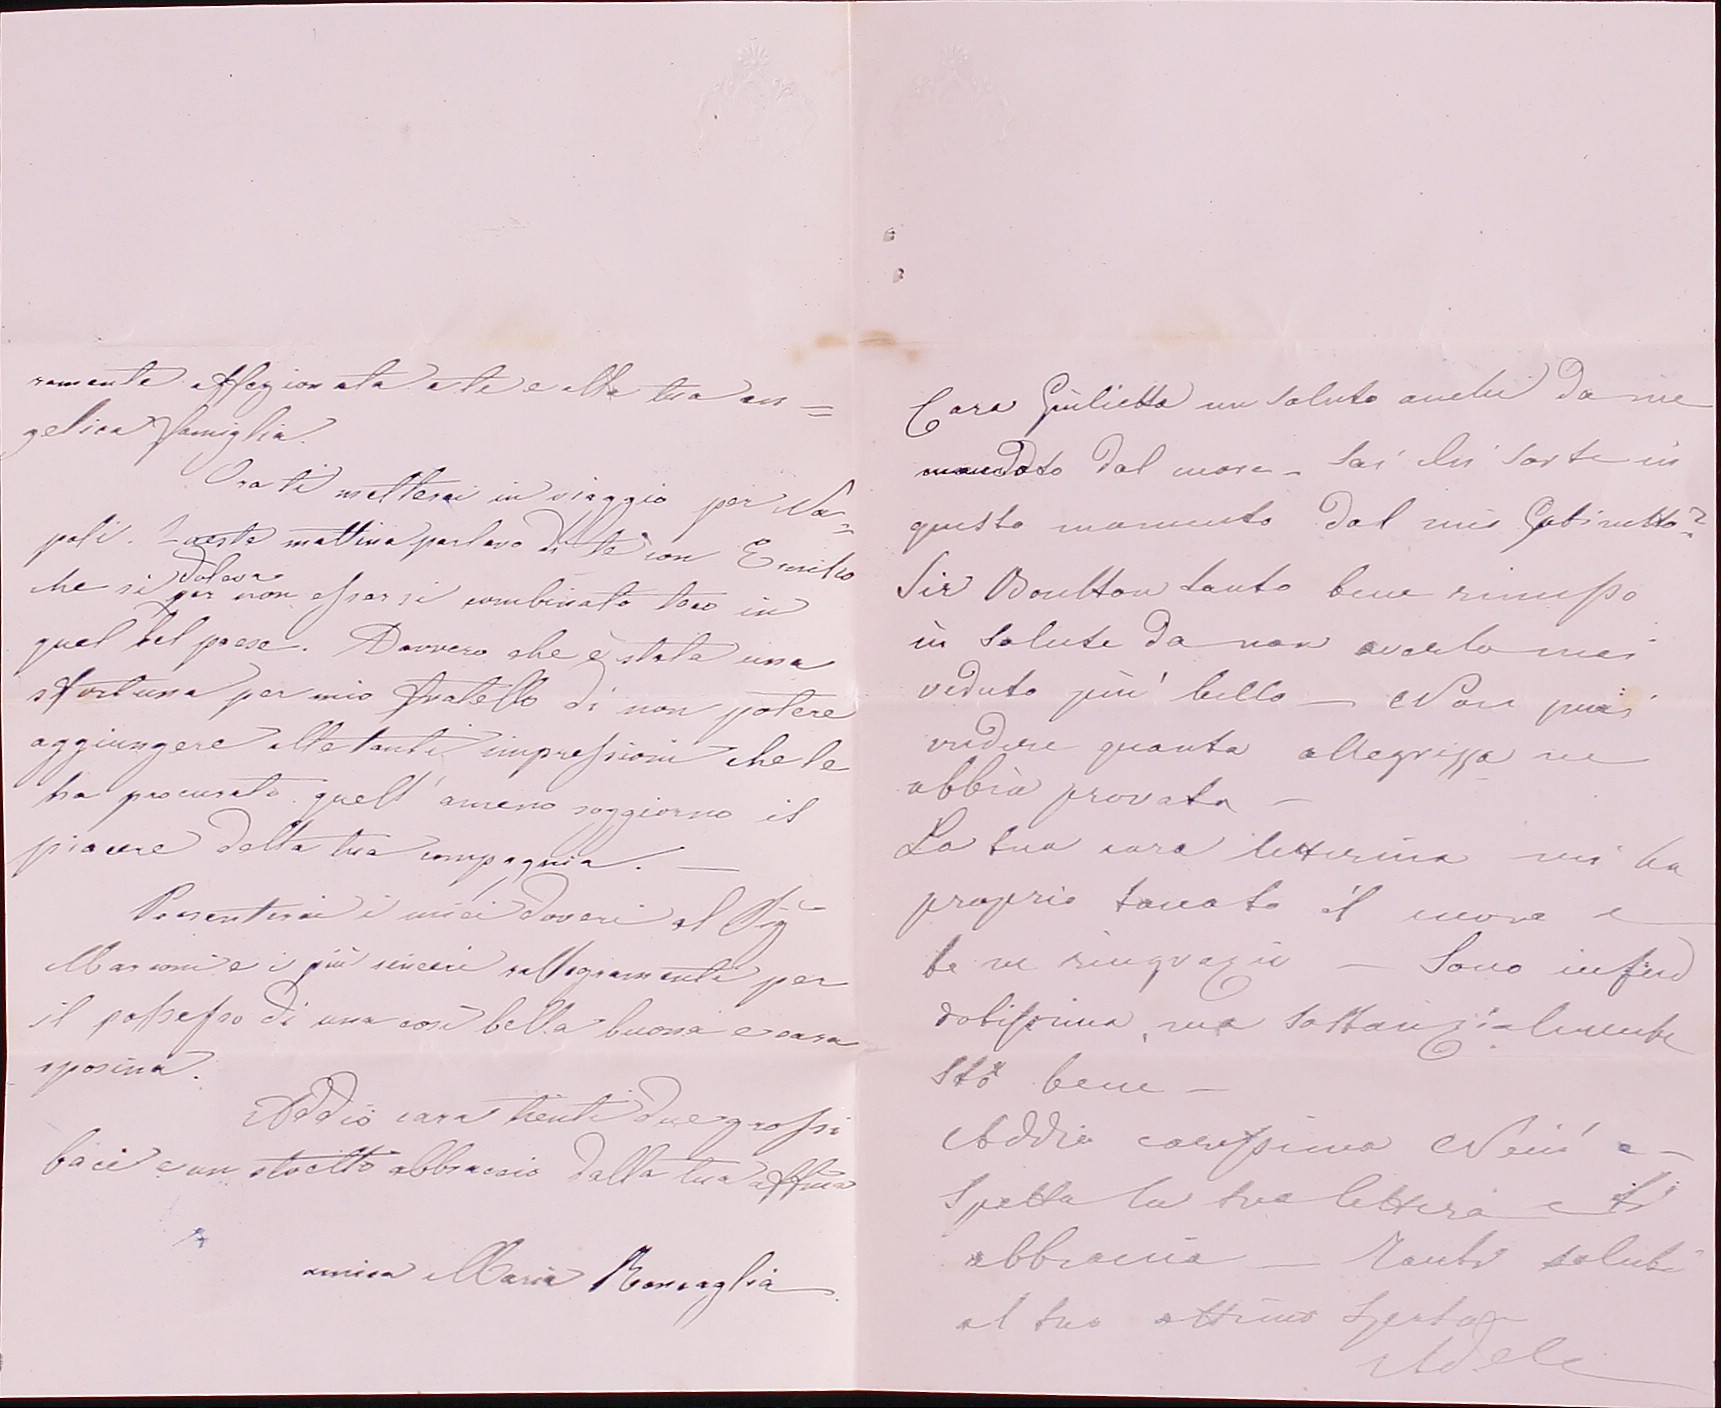 ramente affezionata a te e alla tua an=
gelica famiglia.
Ora ti metterai in viaggio per Na=
poli. Questa mattina parlavo di te con Emilio
che si doleva per non essersi combinato teco in
quel bel paese. Davvero che è stata una
sfortuna per mio fratello di non potere
aggiungere alle tante impressioni che le
ha procurato quell'ameno soggiorno il
piacere della tua compagnia. —
Presenterai i miei doveri al Sig
Marconi e i più sinceri rallegramenti per
il possesso di una così bella buona e cara
sposina.
Addio cara tienti due grossi
baci e un stretto abbraccio dalla tua affma
amica Maria Roncaglia
Cara Giulietta un saluto anche da me
mandato dal cuore – Sai chi sorte in
questo momento dal mio Gabinetto?
Sir Boulton tanto bene rimesso
in salute da non averlo mai
veduto più bello — Non puoi
credere quanta allegrezza ne
abbia provata —
La tua cara letterina mi ha
proprio toccato il cuore e
te ne ringrazio — Sono infred
datissima, ma sostanzialmente
stò bene —
Addio carissima Nini a–
spetta la tua lettera e ti
abbraccia — Tanti saluti
al tuo ottimo sposo
Adele